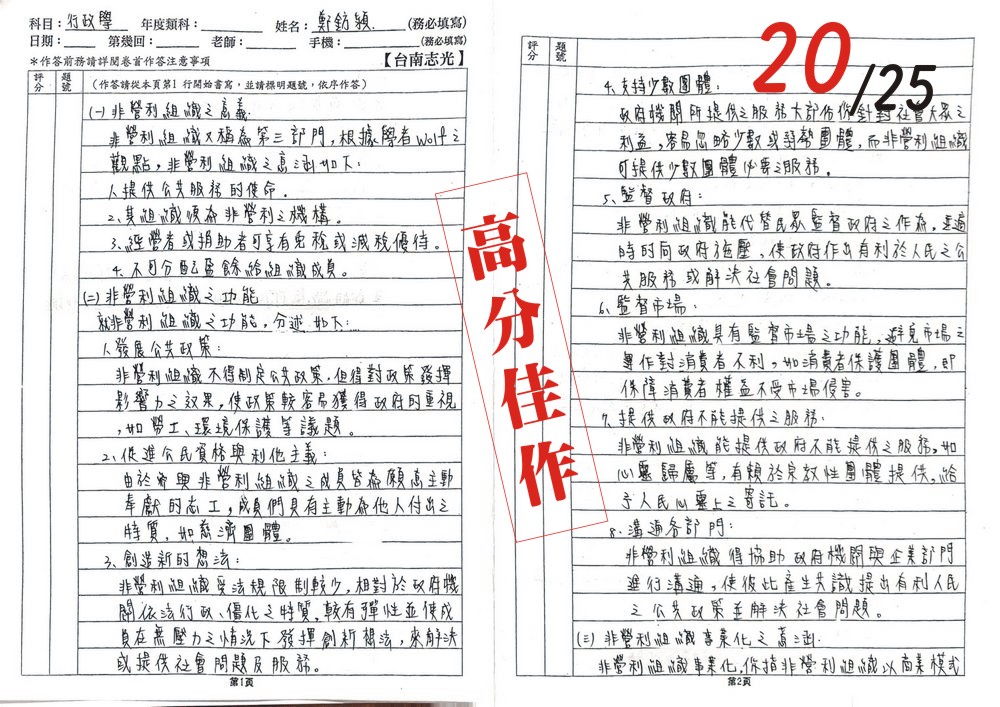 科目：行政學 年度類科： 姓名：鄭鈁穎 (務必填寫)
日期： 第幾回： 老師： 手機： (務必填寫)
＊作答前務請詳閱卷首作答注意事項 【台南志光】
評分 題號 (作答請從本頁第1行開始書寫，並請標明題號，依序作答)
(一)非營利組織之意義:
非營利組織又稱為第三部門，根據學者Wolf之
觀點，非營利組織之意涵如下:
1.提供公共服務的使命。
2.其組織須為非營利之機構。
3.經營者或捐助者可享有免稅或減稅優待。
4.不可分配盈餘給組織成員。
(二)非營利組織之功能
就非營利組織之功能，分述如下:
1.發展公共政策:
非營利組織不得制定公共政策，但得對政策發揮
影響力之效果，使政策較容易獲得政府的重視
，如勞工、環境保護等議題。
2.促進公民資格與利他主義:
由於參與非營利組織之成員皆為願意主動
奉獻的志工，成員們具有主動為他人付出之
特質，如慈濟團體。
3.創造新的想法:
非營利組織受法規限制較少，相對於政府機
關依法行政、僵化之特質，較有彈性並使成
員在無壓力之情況下發揮創新想法，來解決
或提供社會問題及服務。
第1頁
20/25
評分 題號
4.支持少數團體:
政府機關所提供之服務大部份係針對社會大眾之
利益，容易忽略少數或弱勢團體，而非營利組織
可提供少數團體必要之服務。
5.監督政府:
非營利組織能代替民眾監督政府之作為，適
時的向政府施壓，使政府作出有利於人民之公
共服務或解決社會問題。
6.監督市場:
非營利組織具有監督市場之功能，避免市場之
運作對消費者不利，如消費者保護團體，即
保障消費者權益不受市場侵害。
7.提供政府不能提供之服務:
非營利組織能提供政府不能提供之服務，如
心靈歸屬等，有賴於宗教性團體提供，給
予人民心靈上之寄託。
8.溝通各部門:
非營利組織得協助政府機關與企業部門
進行溝通，使彼此產生共識提出有利人民
之公共政策並解決社會問題。
(三)非營利組織事業化之意涵:
非營利組織事業化，係指非營利組織以商業模式
第2頁
高分佳作